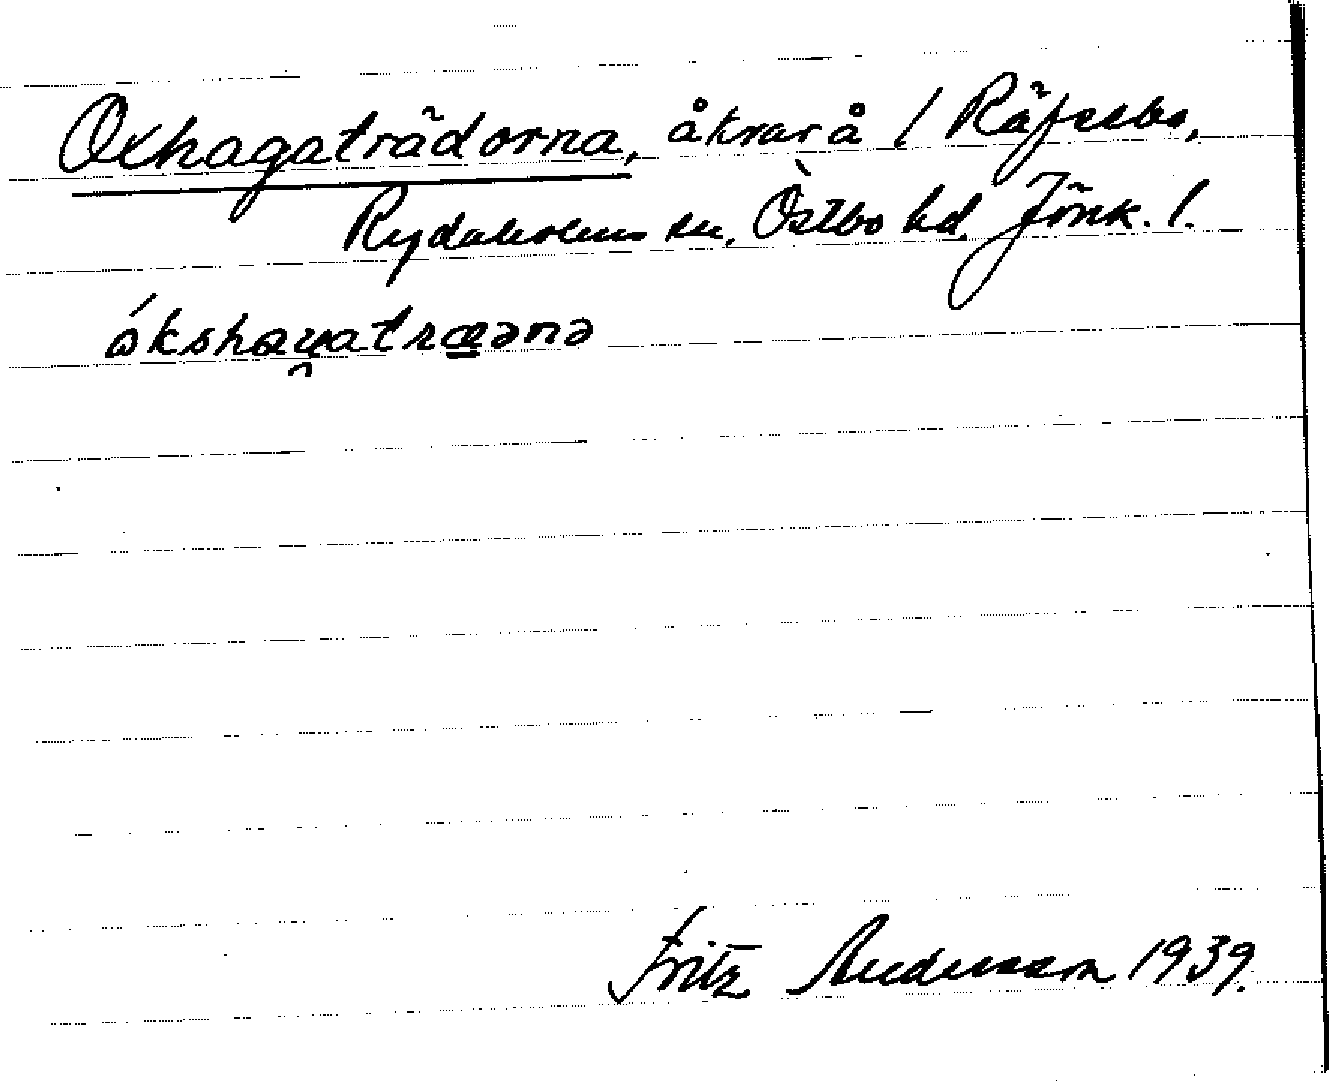 Oxhagaträdorna, åkrar å / Räfsebo,
Rydaholms sn. Östbo hd. Jönk. l.
ákshaγatræənə
Fritz Andersson 1939.